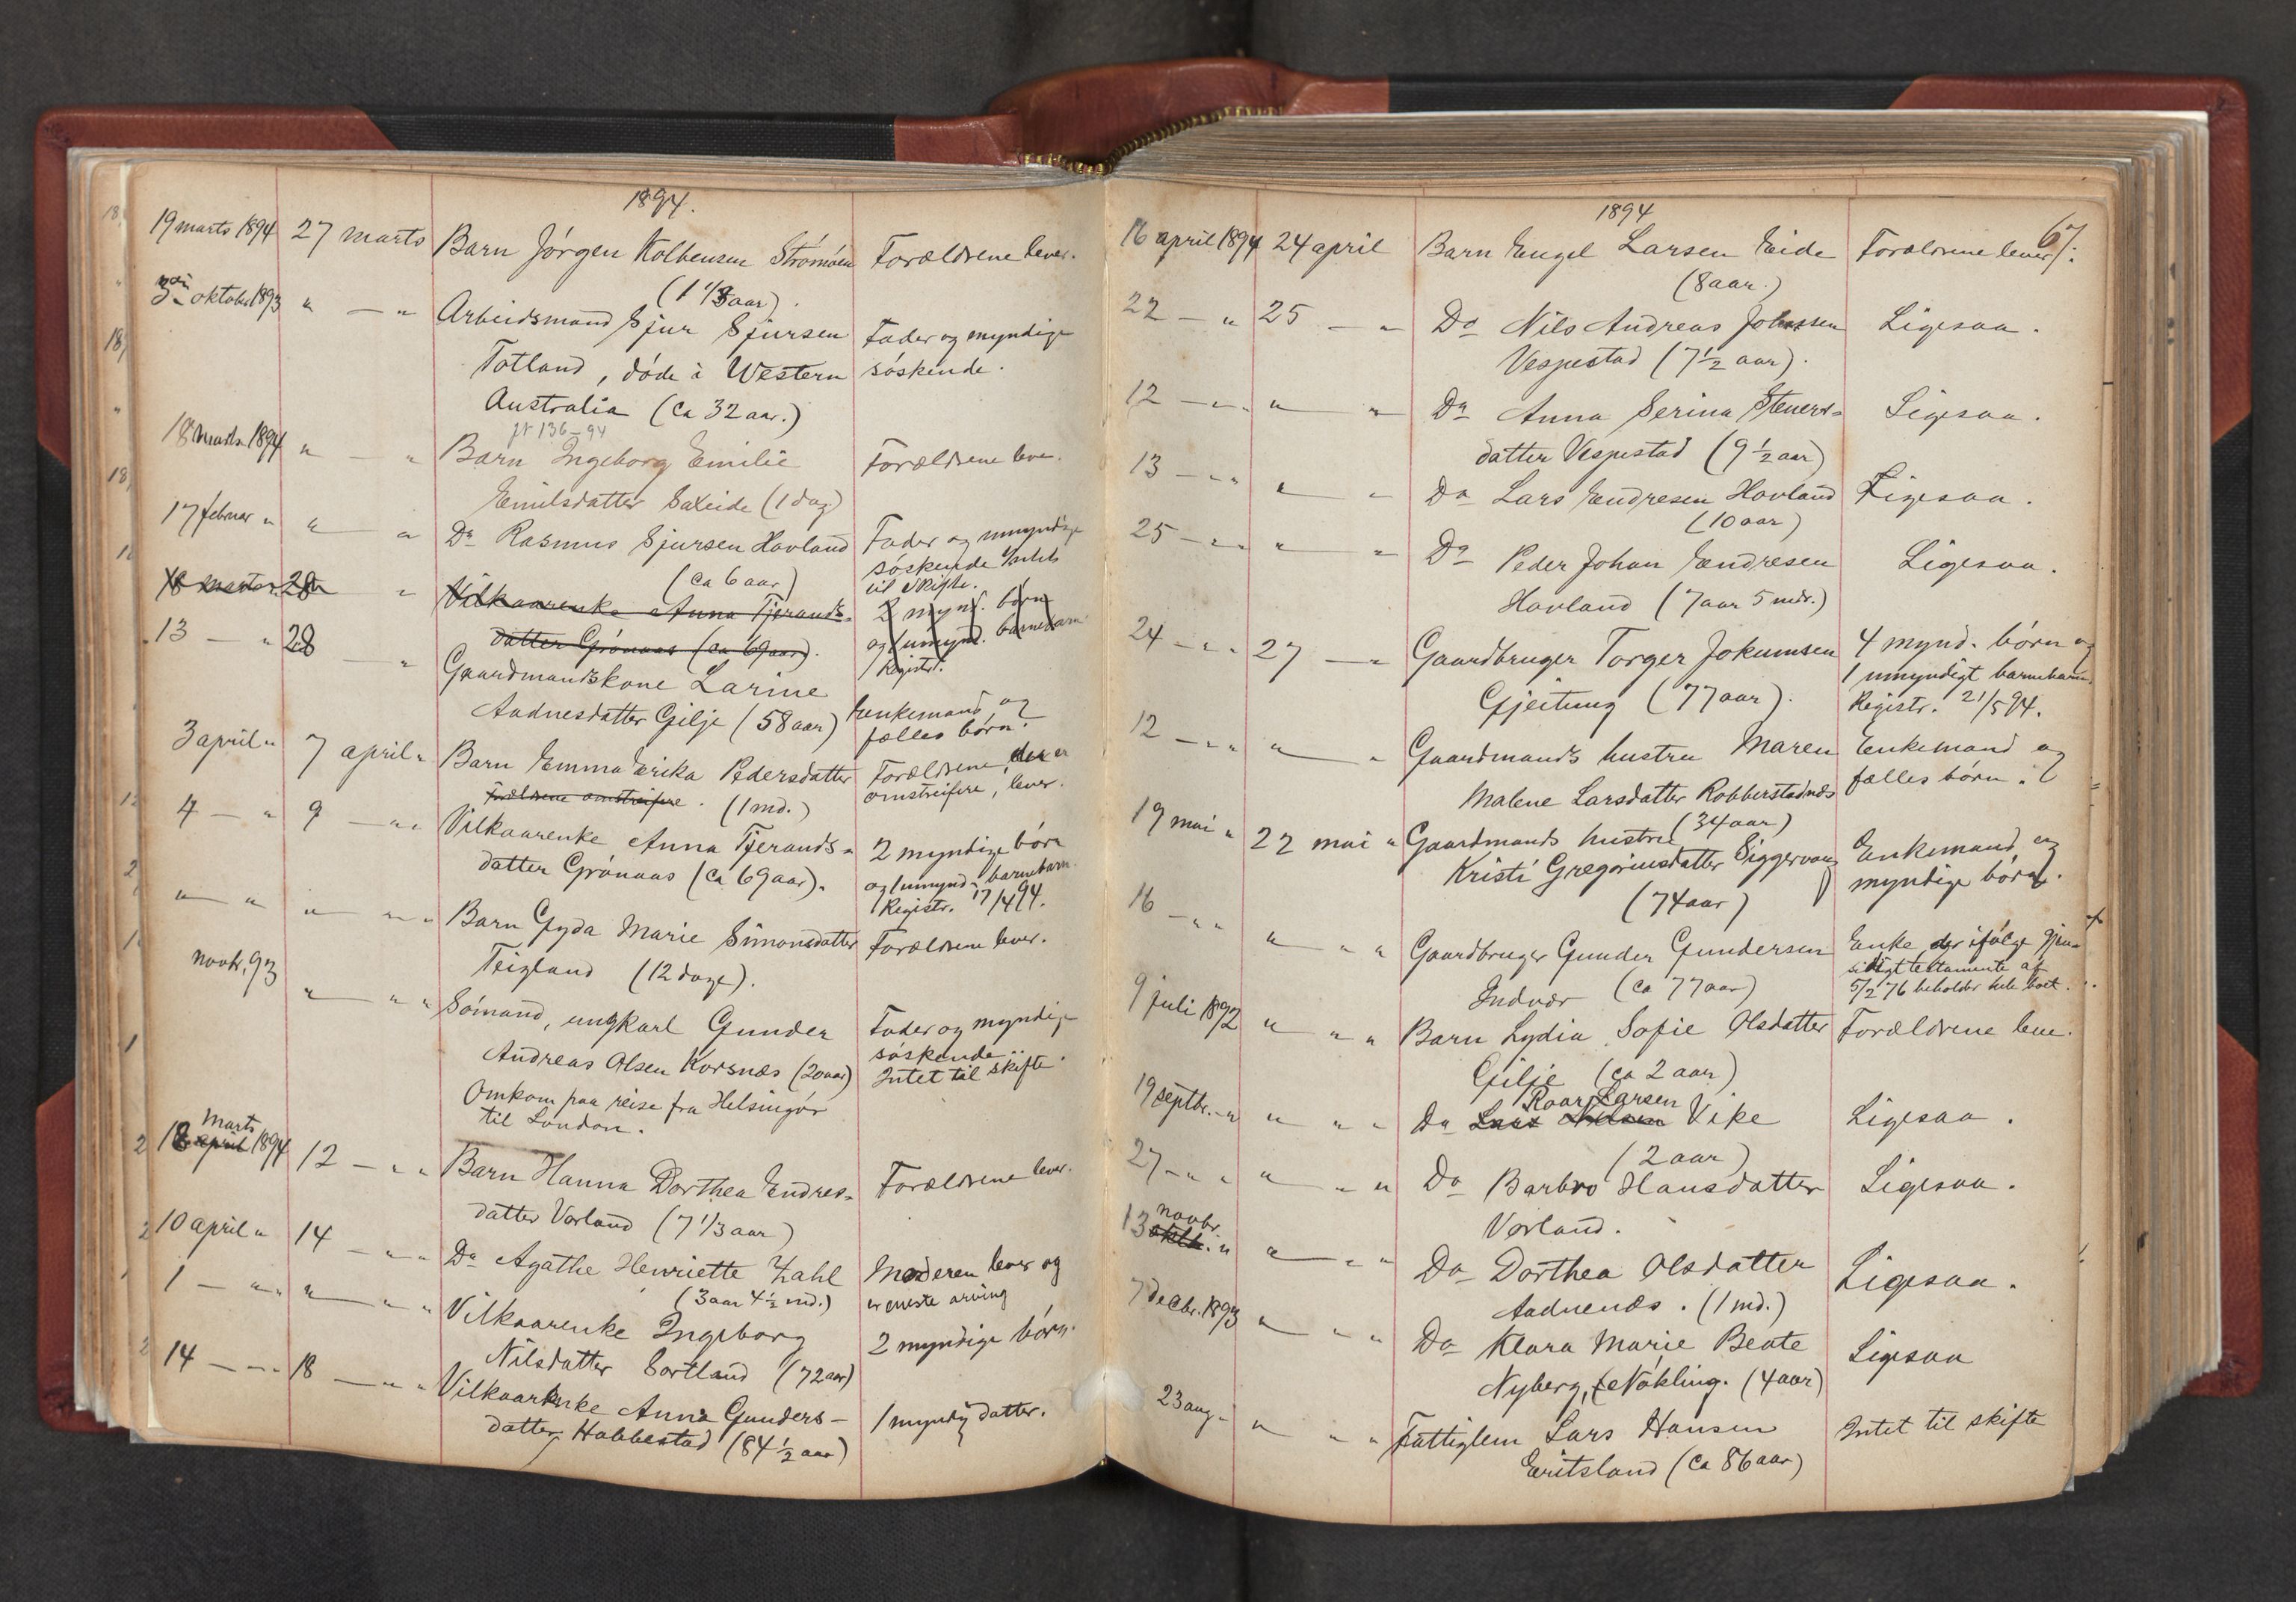 1894.
19 marts 1894 27 marts Barn Jørgen Kolbensen Strømøen Forældrene lever.
(1 1/3 aar).
3die oktober 1893 " — " Arbeidsmand Sjur Sjursen Fader og myndige
Totland, døde i Western søskende.
Australia (ca 32 aar.)
jr 136-94
18 marts 1894 " — " Barn Ingeborg Emilie Forældrene lever.
Emilsdatter Saleide (1 dag)
17 februar " " — " Do Rasmus Sjursen Hovland Fader og umyndige
søskende Intet
(ca 6 aar) til skifte.
18 marts " 28 " Vilkaarenke Anna Tjerands- 2 mynd. børn
datter Grønaas (ca 69 aar). og 1 umynd. barnebarn
13 — " 28 — " Gaardmandskone Larine Registr.
Aadnesdatter Gilje (58 aar) Enkemand og
fælles børn.
3 april " 7 april " Barn Emma Erika Pedersdatter Forældrene, der er
Forældrene omstreifere. (1 md.) omstreifere, lever.
4 — " 9 — " " Vilkaarenke Anna Tjerands- 2 myndige børn
datter Grønaas (ca 69 aar). og 1 umynd. barnebarn
Registr. 17/4 94.
" — " " — " " Barn Gyda Marie Simonsdatter Forældrene lever.
Teigland (12 dage).
novbr. 93 " — " " Sømand, ungkarl Gunder Fader og myndige
Andreas Olsen Korsnæs (20 aar) søskende.
Omkom paa reise fra Helsingør Intet til skifte.
til London.
marts
18 april 1894 12 — " " Barn Hanna Dorthea Endres- Forældrene lever.
datter Vorland (7 1/3 aar)
10 april " 14 — " " Do Agathe Henriette Zahl Moderen lever og
(3 aar 4 1/2 md.) er eneste arving
1 — " " " — " " Vilkaarenke Ingeborg 2 myndige børn.
Nilsdatter Sortland (72 aar)
14 — " 18 — " " Vilkaarenke Anna Gunders- 1 myndig datter.
datter Habbestad (84 1/2 aar)
1894
67.
16 april 1894 24 april Barn Engel Larsen Eide Forældrene lever.
(8 aar.)
22 — " 25 — " Do Nils Andreas Johnssen Ligesaa.
Vespestad (7 1/2 aar).
12 — " " " Do Anna Serina Steners- Ligesaa.
datter Vespestad (9 1/2 aar)
13 — " " — " Do Lars Endresen Hovland Ligesaa.
(10 aar)
25 — " " — " Do Peder Johan Endresen Ligesaa.
Hovland (7 aar 5 mdr.)
24 — " 27 — " Gaardbruger Torger Jokumsen 4 mynd. børn og
1 umyndigt barnebarn.
Gjeitung (77 aar). Registr. 21/5 94.
12 — " " — " Gaardmands hustru Maren Enkemand og
Malene Larsdatter Robberstadnæs fælles børn.
(34 aar)
19 mai " 22 mai " Gaardmands hustru Enkemand og
Kristi Gregoriusdatter Siggervaag myndige børn.
(74 aar)
16 — " " — " " Gaardbruger Gunder Gundersen Enke, der ifølge gjen-
sidigt testamente af
Indvær (ca 77 aar) 5/2 76 beholder hele boet.
9 juli 1892 " " " Barn Lydia Sofie Olsdatter Forældrene lever.
Gilje (ca 2 aar)
Roar Larsen
19 septbr. " " " " Do Lars Nilsen Vike Ligesaa.
(2 aar)
27 — " " — " " Do Barbro Hansdatter Ligesaa.
Vorland.
novbr.
13 oktb. " " — " " Do Dorthea Olsdatter Ligesaa.
Aadnenæs. (1 md.)
7 decbr. 1893 " " " Do Klara Marie Beate Ligesaa
Nyberg, Nøkling. (4 aar)
23 aug. " " — " " Fattiglem Lars Hansen Intet til skifte
Eeritsland (ca 86 aar)